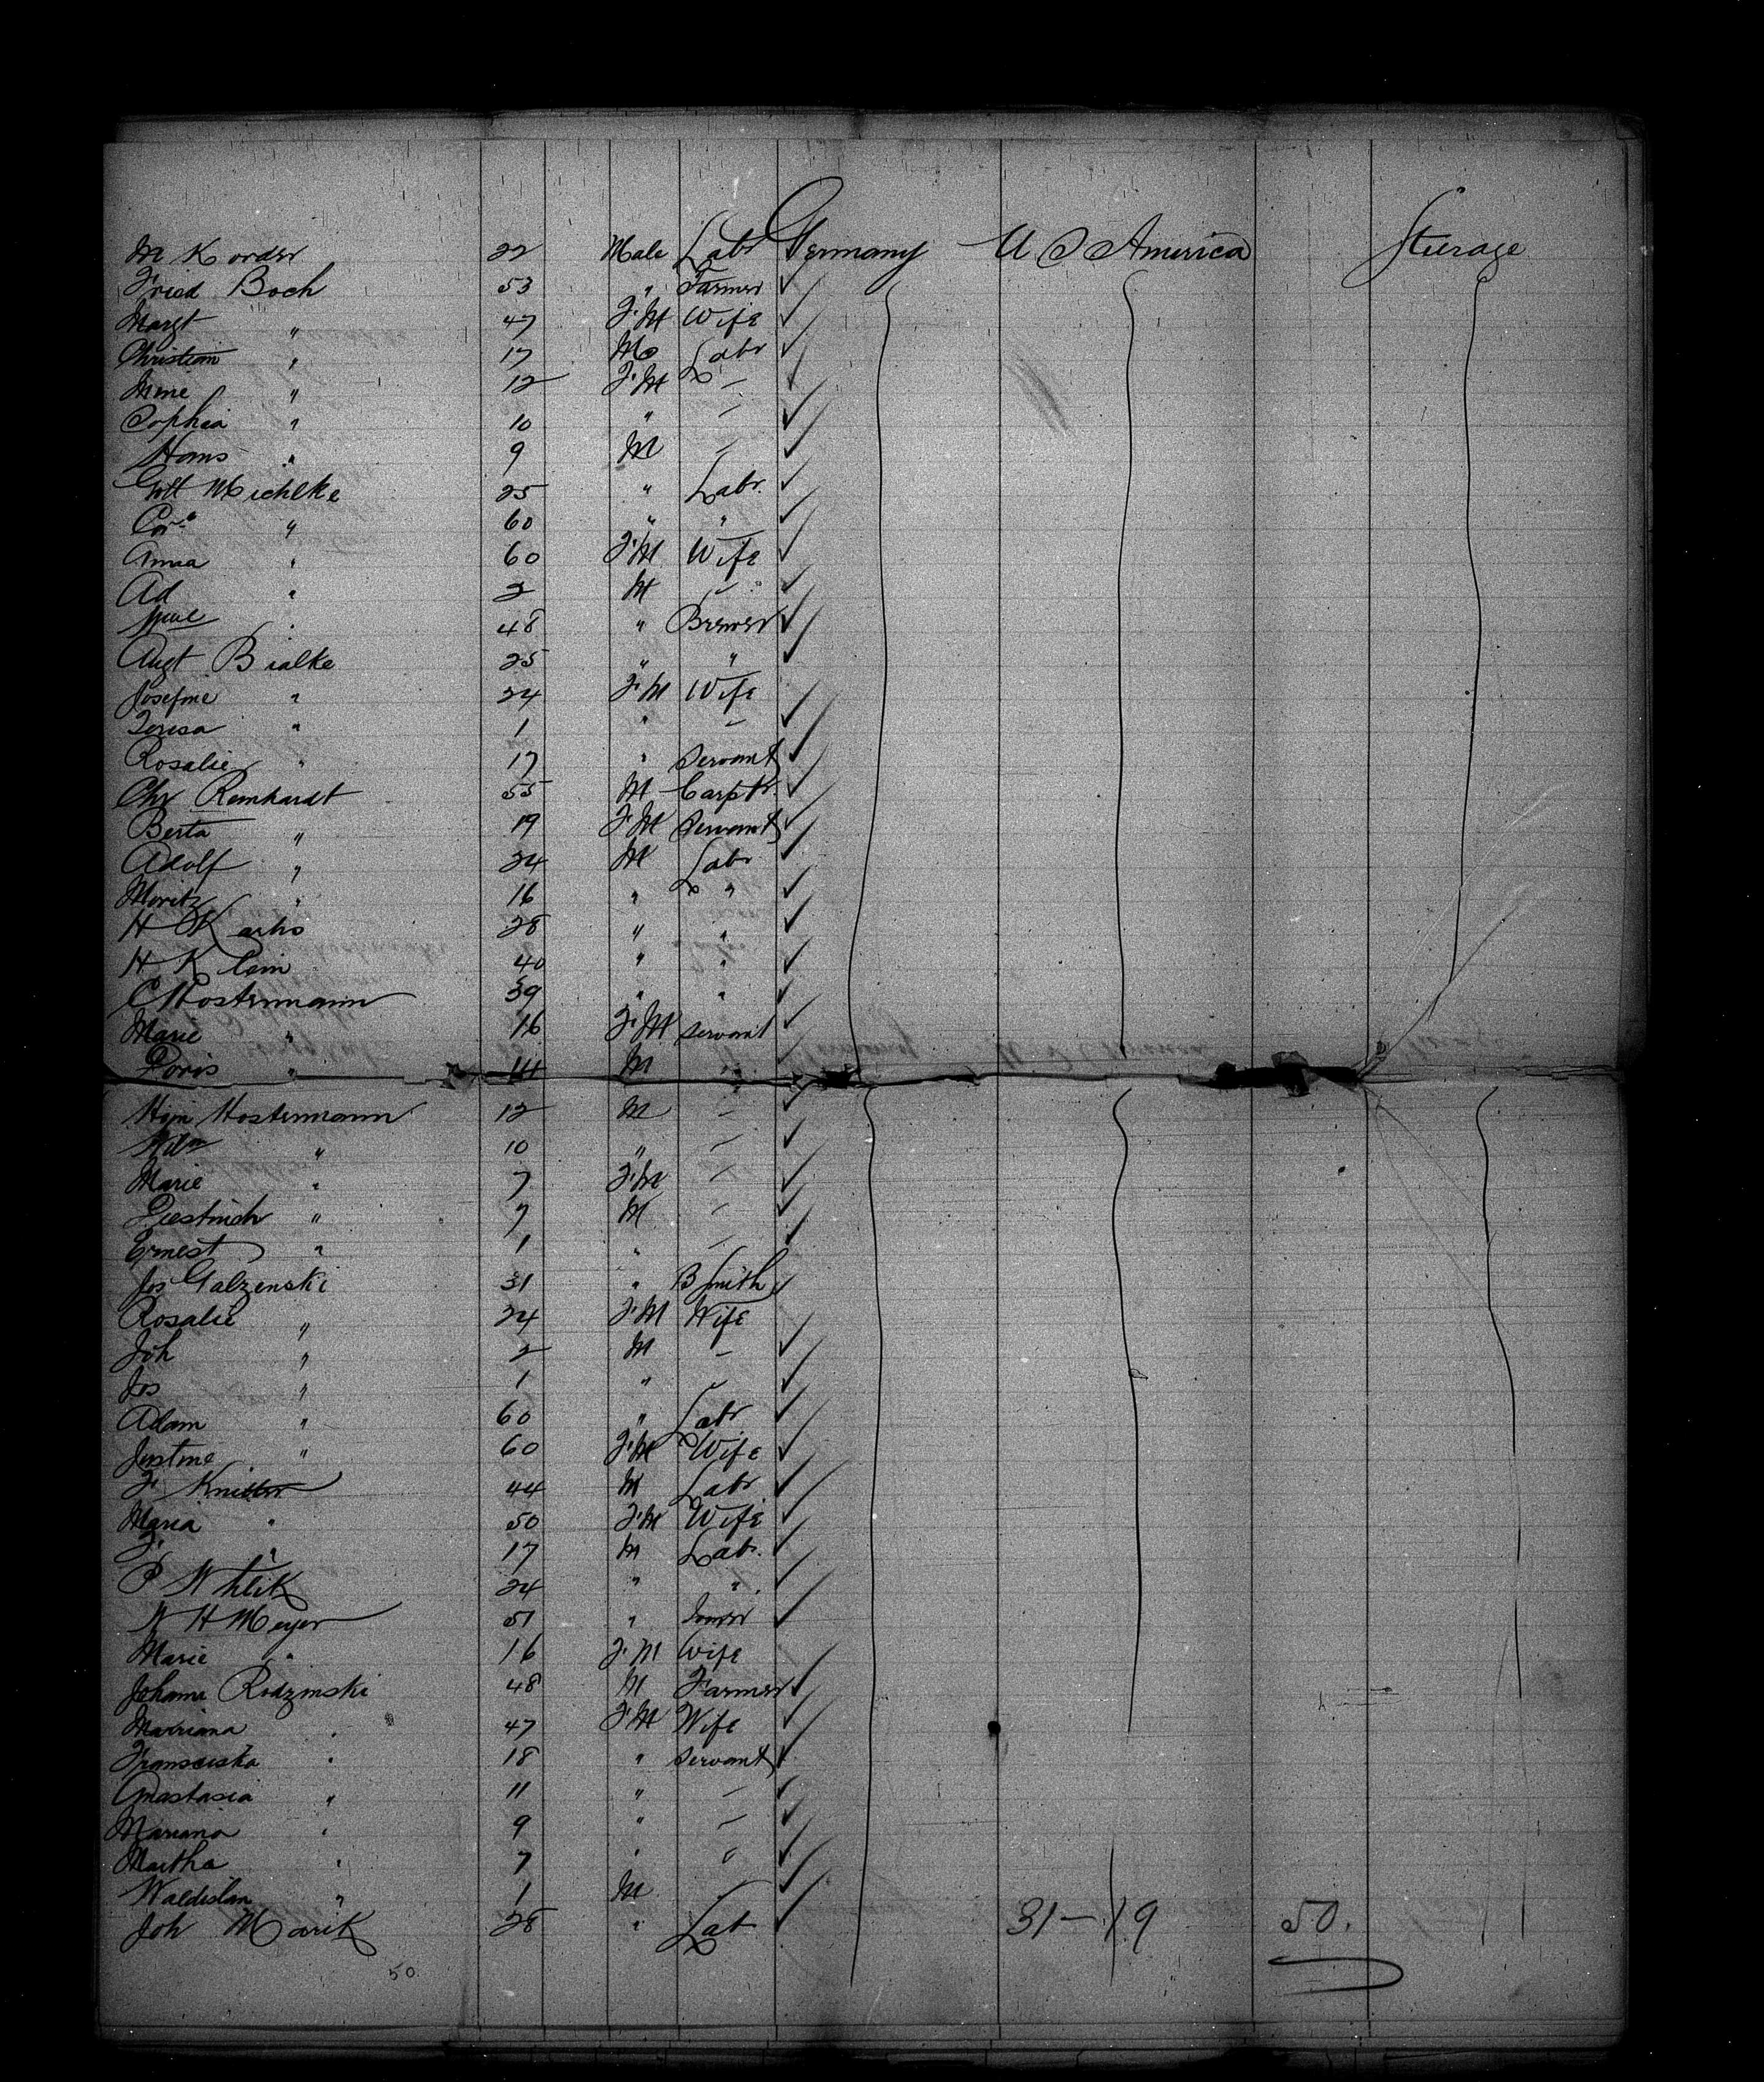 M Korder 22 Male Labr Germany U S America Steerage
Fried Boch 53 " Farmer
Margt " 47 F.M Wife
Christian " 17 M Labr
Mine " 12 F.M –
Sophia " 10 " –
Hans " 9 M –
Gott Michlke 25 " Labr.
" 60 " "
Anna " 60 F.M Wife
Ad " 2 M –
" 48 " Brewer
Augt Bialke 25 " "
Josefine " 24 F.M Wife
Teresa " 1 " –
Rosalie " 17 " Servant
Chr Reinhardt 55 M Carptr.
Berta " 19 F.M Servant
Adolf " 24 M Labr
Moritz " 16 " "
H Karho 28 " "
H Klein 40 " "
C Hostermann 39 " "
Marie " 16 F.M Servant
Doris " 14 M "
Hein Hostermann 12 M –
Wilm " 10 " –
Marie " 7 F.M –
Diestrich " 7 M –
Ernest " 1 " –
Jos Galzenski 31 " B Smith
Rosalie " 24 F.M Wife
Joh " 2 M –
Jos " 1 " –
Adam " 60 " Labr
Justine " 60 F.M Wife
F. Knitter 44 M Labr
Maria " 50 F.M Wife
F. " 17 M Labr.
P Whlik 24 " "
W H Meyer 51 " Joiner
Marie " 16 F.M Wife
Johann Rodzinski 48 M Farmer
Marriana " 47 F.M Wife
Fransciska " 18 " Servant
Anastasia " 11 " –
Mariana " 9 " –
Martha " 7 " "
Waldislaw " 1 M
Joh Marik 28 " Lab 31–19 50.
50